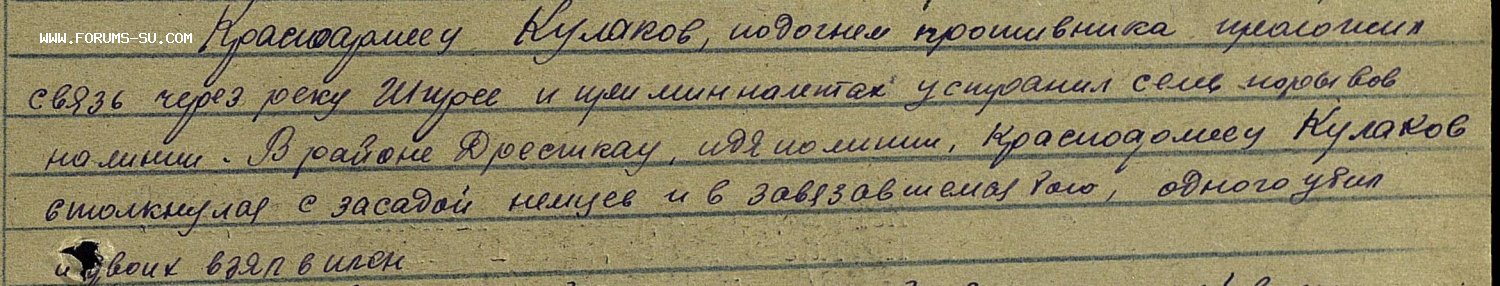 WWW.FORUMS-SU.COM
Красноармеец Кулаков, подогнем противника проложил
связь через реку Шпрее и при миннолетах устранил семь порывов
налинии. В районе Дрешкау, идя полинии, Красноармеец Кулаков
столкнулся с засадой немцев и в завязавшемся бою, одного убил
и двоих взял в плен